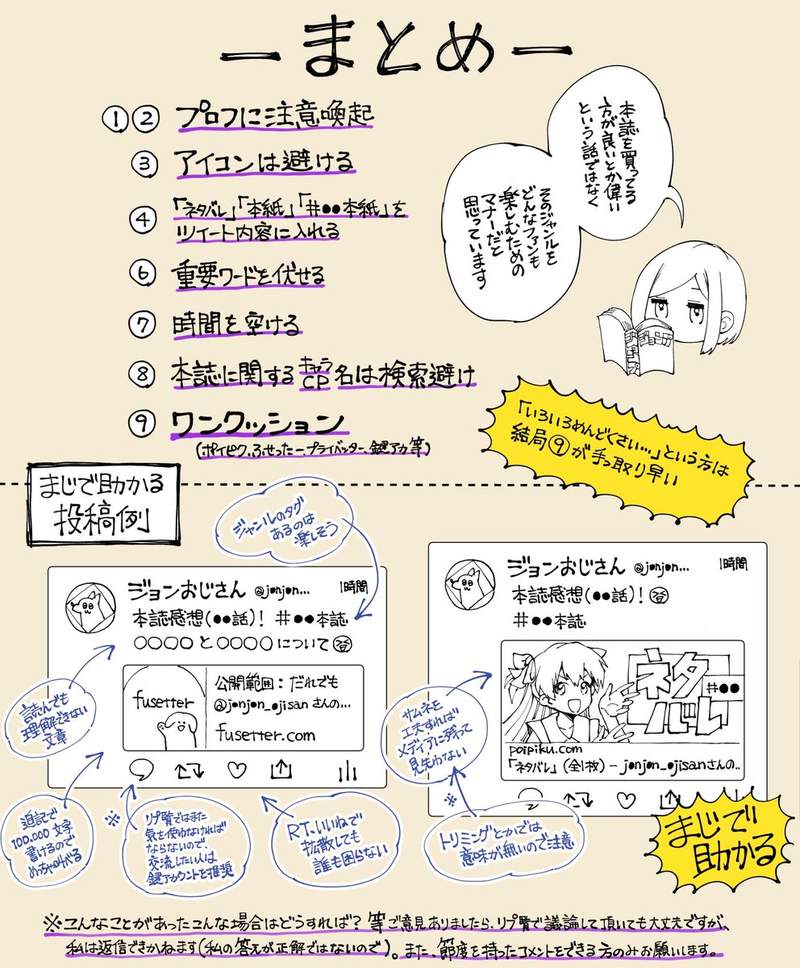 ーまとめー
①② プロフに注意喚起
③ アイコンは避ける
④ 「ネタバレ」「本紙」「#●●本紙」を
ツイート内容に入れる
⑥ 重要ワードを伏せる
⑦ 時間を空ける
⑧ 本誌に関するキャラCP名は検索避け
⑨ ワンクッション
(ポイピク、ふせったー、プライバッター、鍵アカ等)
本誌を買ってる
方が良いとか偉い
という話ではなく
そのジャンルを
どんなファンも
楽しむための
マナーだと
思っています
「いろいろめんどくさい…」という方は
結局⑨が手っ取り早い
まじで助かる
投稿例
ジャンルのタグ
あるのは
楽しそう
ジョンおじさん @jonjon... 1時間
本誌感想(●●話)! #●●本誌
○○○○と○○○○について
fusetter
公開範囲:だれでも
@jonjon_ojisanさんの...
fusetter.com
読んでも
理解できない
文章
追記で
100,000文字
書けるので
めちゃ叫べる
※
リプ覧ではまた
気を使わなければ
ならないので、
交流したい人は
鍵アカウントを推奨
RT、いいねで
拡散しても
誰も困らない
ジョンおじさん @jonjon... 1時間
本誌感想(●●話)!
#●●本誌
ネタ
バレ
#●●
poipiku.com
「ネタバレ」(全1枚)-jonjon_ojisanさんの..
サムネを
工夫すれば
メディアに残って
見失わない
※
トリミングとかでは
意味が無いので注意
まじで
助かる
※こんなことがあったこんな場合はどうすれば?等ご意見ありましたら、リプ覧で議論して頂いても大丈夫ですが、
私は返信できかねます(私の答えが正解ではないので)。また、節度を持ったコメントをできる方のみお願いします。